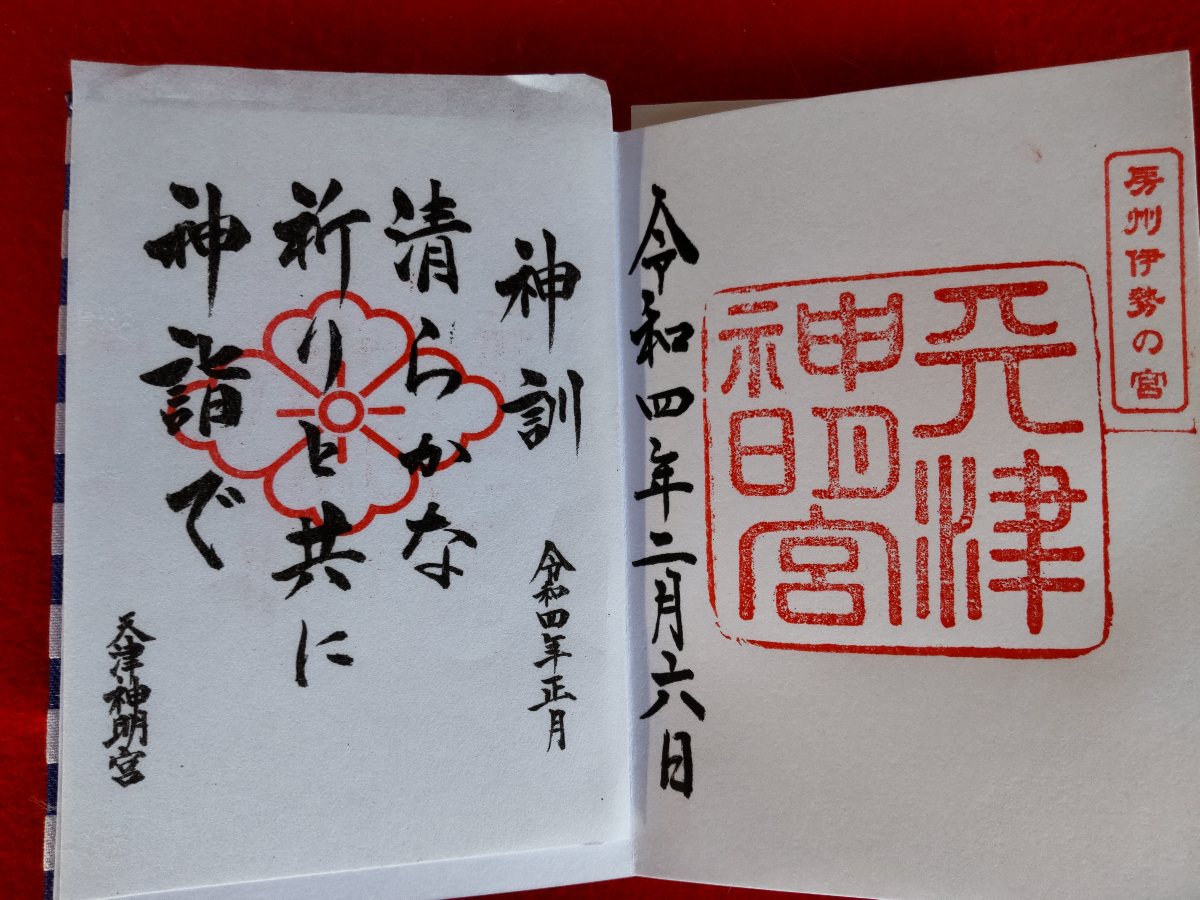 房州伊勢の宮
天津
神明宮
令和四年二月六日
神訓
清らかな
祈りと共に
神詣で
令和四年正月
天津神明宮